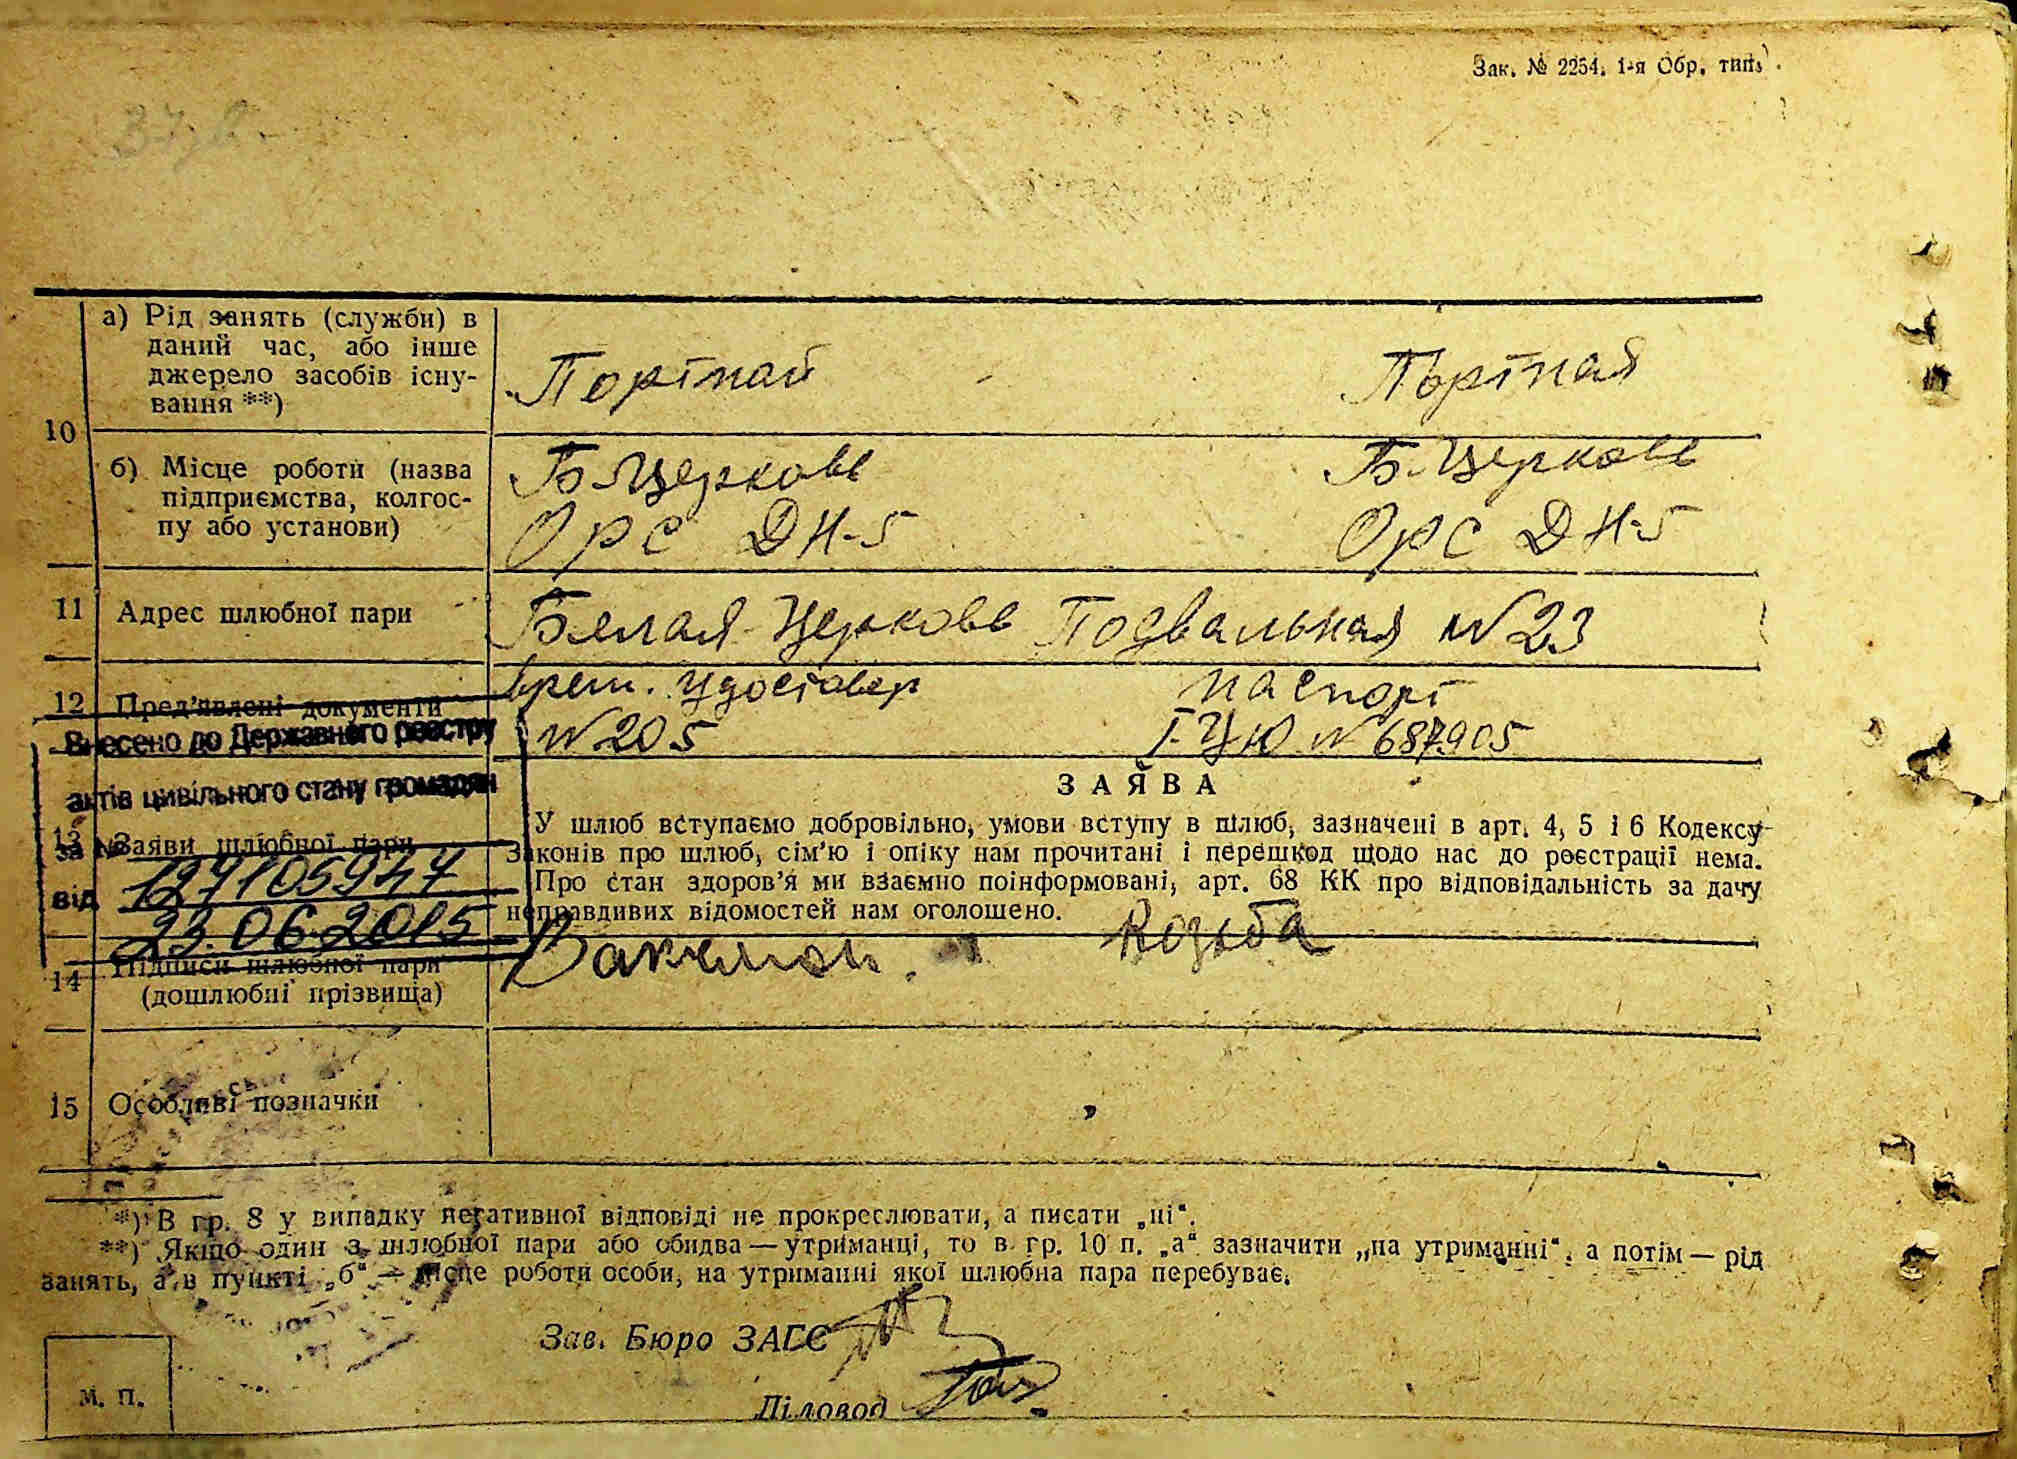 Зак. № 2254. 1-я Обр. тип.
10
а) Рід занять (служби) в
даний час, або інше
джерело засобів існу-
вання **)
Портной
Портная
б) Місце роботи (назва
підприємства, колгос-
пу або установи)
Б-Церковь
ОРС ДН-5
Б-Церковь
ОРС ДН-5
11 Адрес шлюбної пари
Белая-Церковь Подвальная №23
12 Пред'явлені документи
врем. удостовер
№ 205
паспорт
I-ЦЮ № 687905
Внесено до Державного реєстру
актів цивільного стану громадян
за №
127105947
від
23.06.2015
13 Заяви шлюбної пари
ЗАЯВА
У шлюб вступаємо добровільно, умови вступу в шлюб, зазначені в арт. 4, 5 і 6 Кодексу
Законів про шлюб, сім'ю і опіку нам прочитані і перешкод щодо нас до реєстрації нема.
Про стан здоров'я ми взаємно поінформовані, арт. 68 КК про відповідальність за дачу
неправдивих відомостей нам оголошено.
14 Підписи шлюбної пари
(дошлюбні прізвища)
Козьба
15 Особливі позначки
*) В гр. 8 у випадку негативної відповіді не прокреслювати, а писати „ні“.
**) Якщо один з шлюбної пари або обидва — утриманці, то в гр. 10 п. „а“ зазначити „на утриманні“, а потім — рід
занять, а в пункті „б“ — місце роботи особи, на утриманні якої шлюбна пара перебуває.
Зав. Бюро ЗАГС
Діловод
М. П.